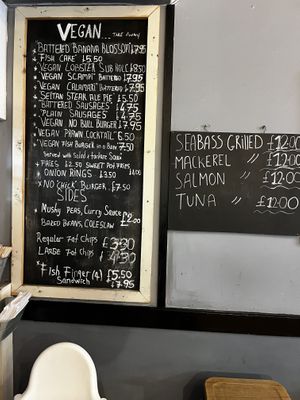 VEGAN... TAKE AWAY
BATTERED BANANA BLOSSOM £7.95
"FISH CAKE" £5.50
VEGAN LOBSTER SUB ROLE £8.50
"VEGAN SCAMPI" BATTERED £7.95
VEGAN "CALAMARI" BATTERED £7.95
SEITAN STEAK ALE PIE £5.50
"BATTERED SAUSAGES" 4.75
"PLAIN SAUSAGES" £4.75
VEGAN NO BULL BURGER £7.95
VEGAN PRAWN COCKTAIL £6.50
"VEGAN FISH BURGER IN A BUN" 7.50
Served with salad & tartare Sauce
FRIES £2.50 SWEET POT FRIES
ONION RINGS £3.50 £4.00
x NO "CHICK" BURGER £7.50
SIDES
Mushy PEAS, Curry Sauce
BAKED BEANS, COLESLAW £2.00
Regular 7oz Chips £3.30
LARGE 9oz Chips £4.30
"Fish Finger (4) £5.50
Sandwich" £7.95
SEABASS GRILLED £12.00
MACKEREL " £12.00
SALMON " £12.00
TUNA " £12.00